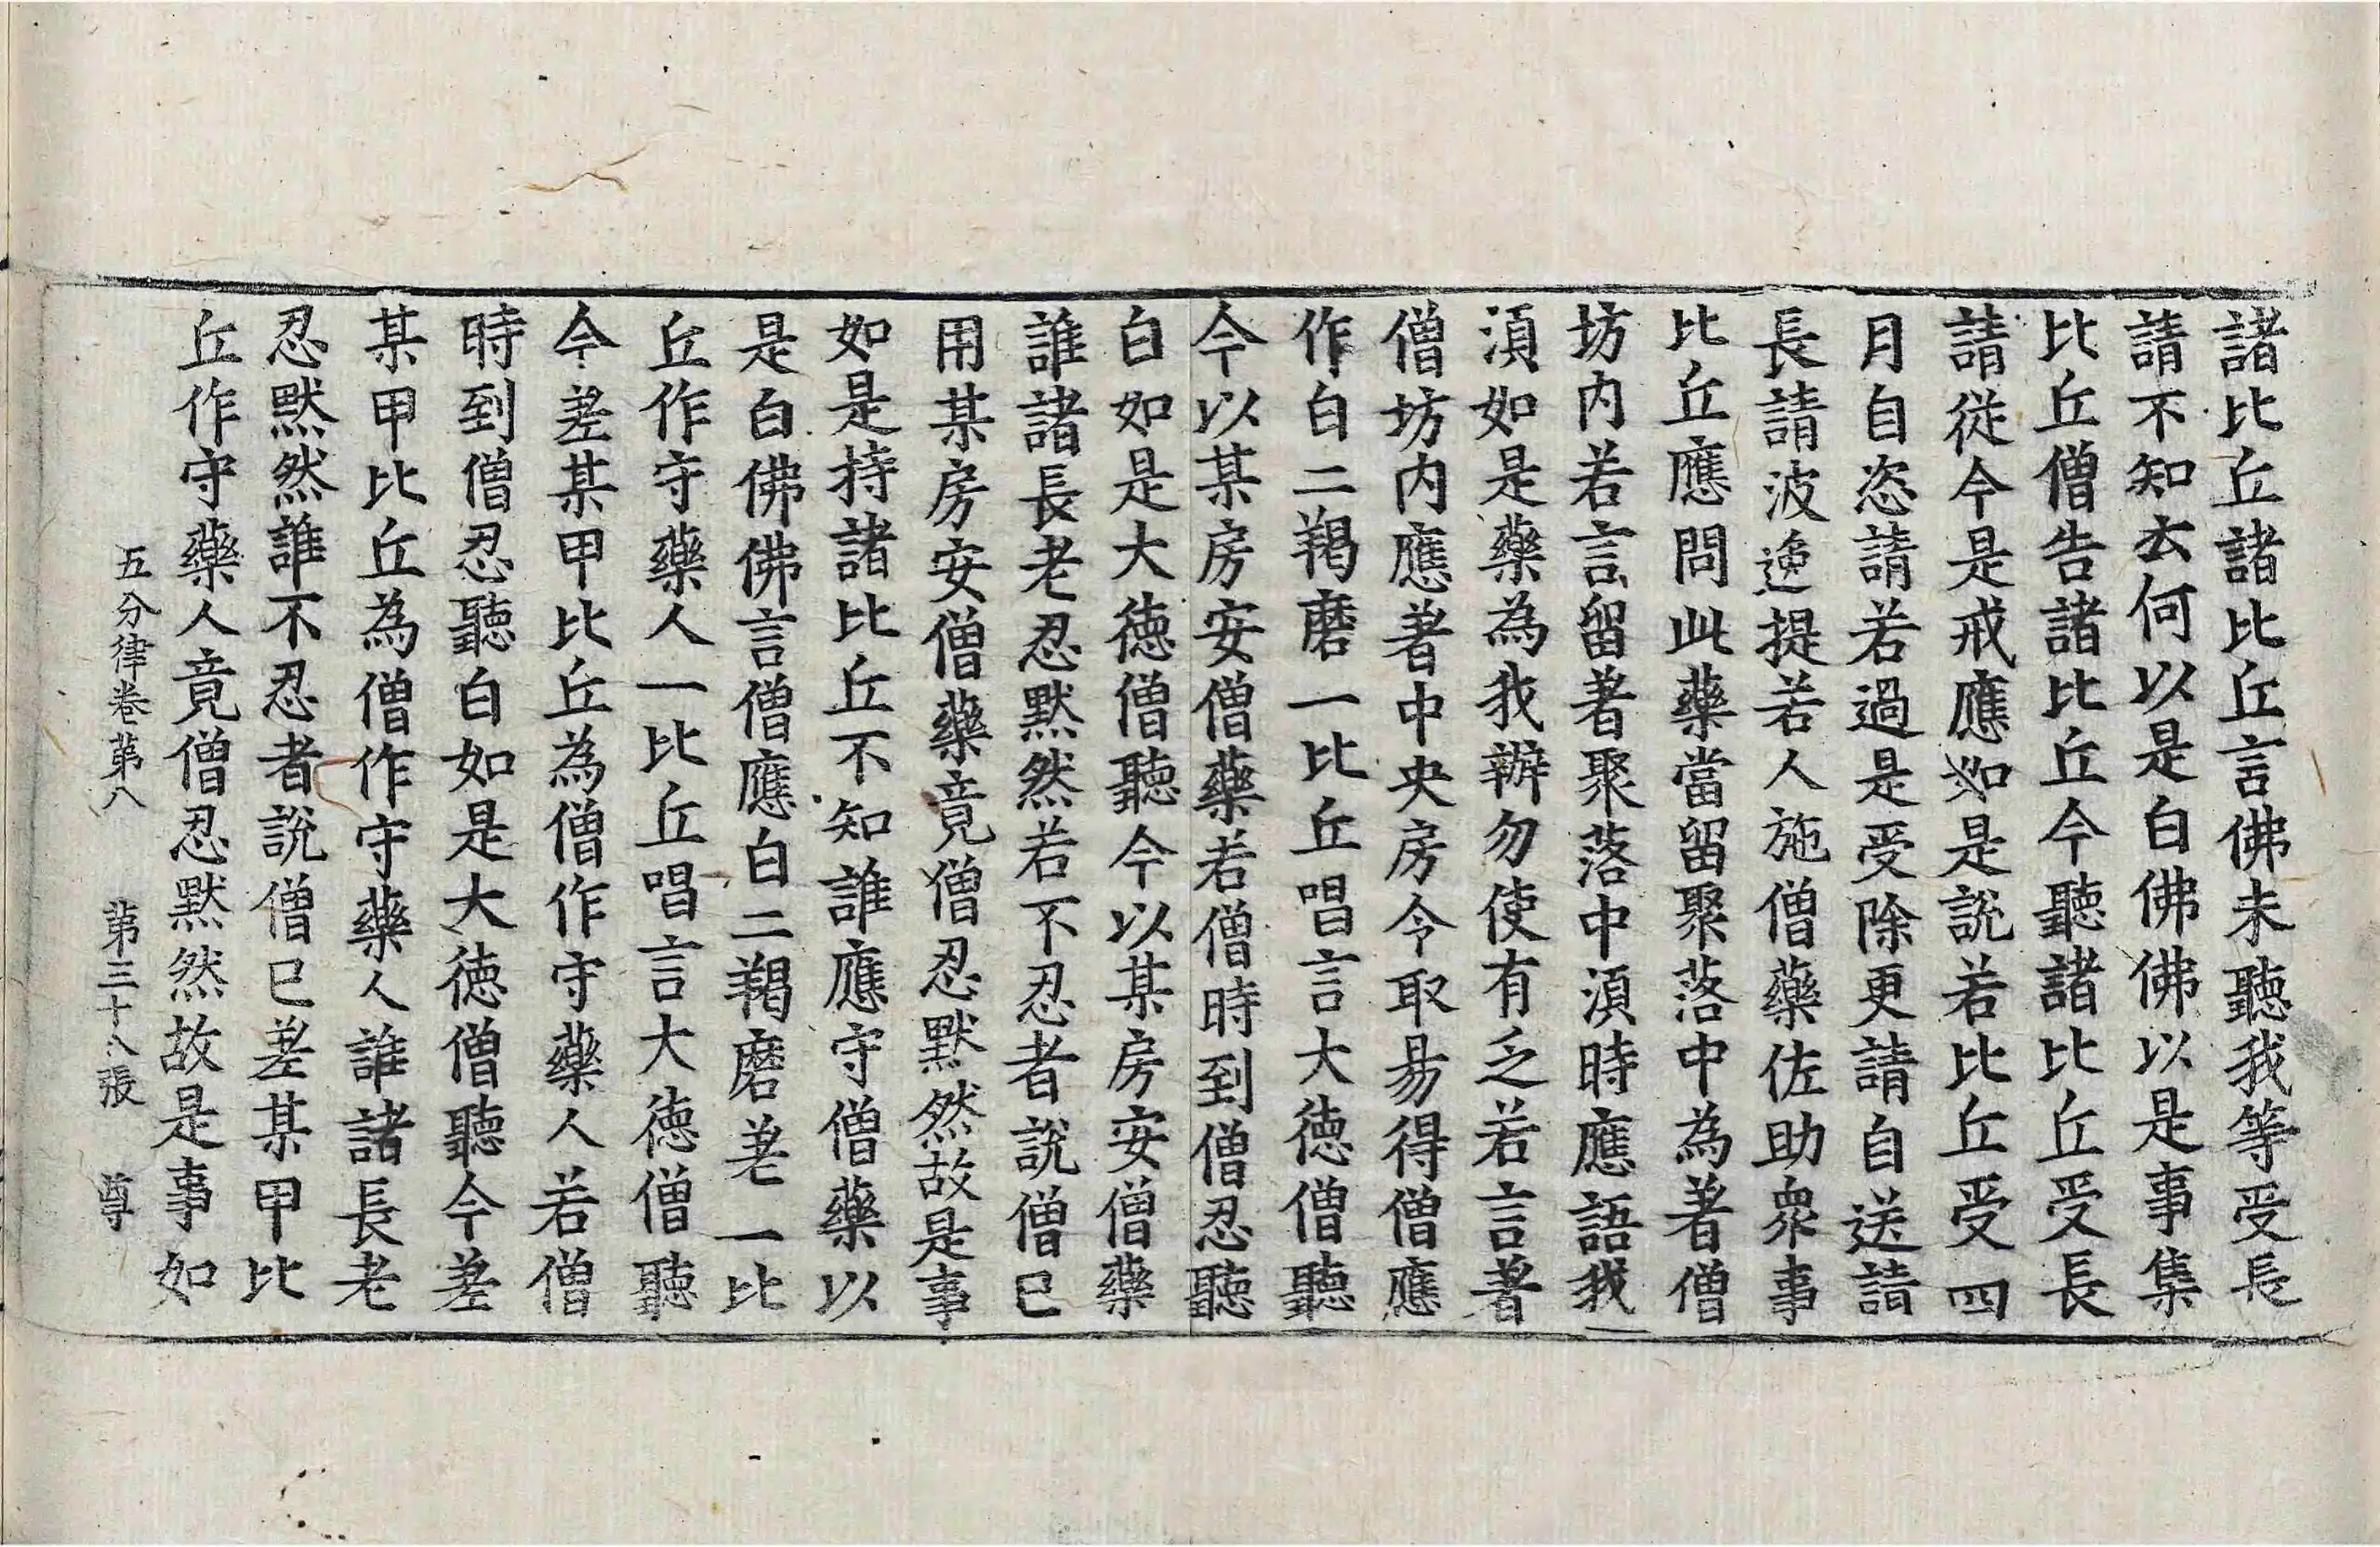 諸比丘諸比丘言佛未聽我等受長
請不知云何以是白佛佛以是事集
比丘僧告諸比丘今聽諸比丘受長
請從今是戒應如是說若比丘受四
月自恣請若過是受除更請自送請
長請波逸提若人施僧藥佐助衆事
比丘應問此藥當留聚落中為著僧
坊内若言留著聚落中湏時應語我
湏如是藥為我辦勿使有乏若言著
僧坊内應著中央房令取易得僧應
作白二羯磨一比丘唱言大德僧聽
今以某房安僧藥若僧時到僧忍聽
白如是大德僧聽今以某房安僧藥
誰諸長老忍默然若不忍者說僧已
用某房安僧藥竟僧忍默然故是事
如是持諸比丘不知誰應守僧藥以
是白佛佛言僧應白二羯磨差一比
丘作守藥人一比丘唱言大德僧聽
今差某甲比丘為僧作守藥人若僧
時到僧忍聽白如是大德僧聽今差
某甲比丘為僧作守藥人誰諸長老
忍默然誰不忍者說僧已差某甲比
丘作守藥人竟僧忍默然故是事如
五分律卷第八 第三十八張 尊